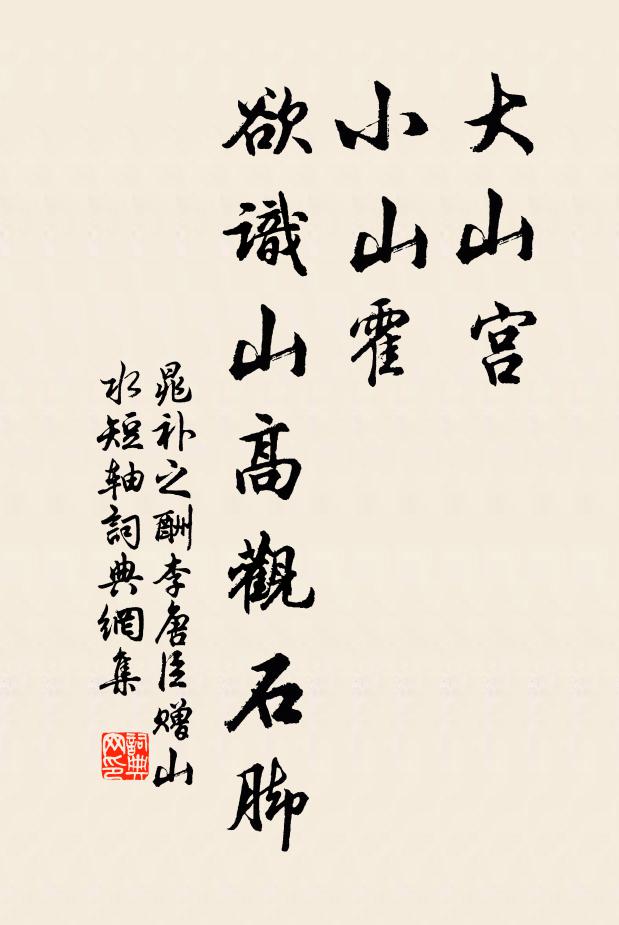 大山宫
小山霍
欲識山高觀石脚
晁补之酬李唐臣赠山
水短轴詞典網集
詞典
网印